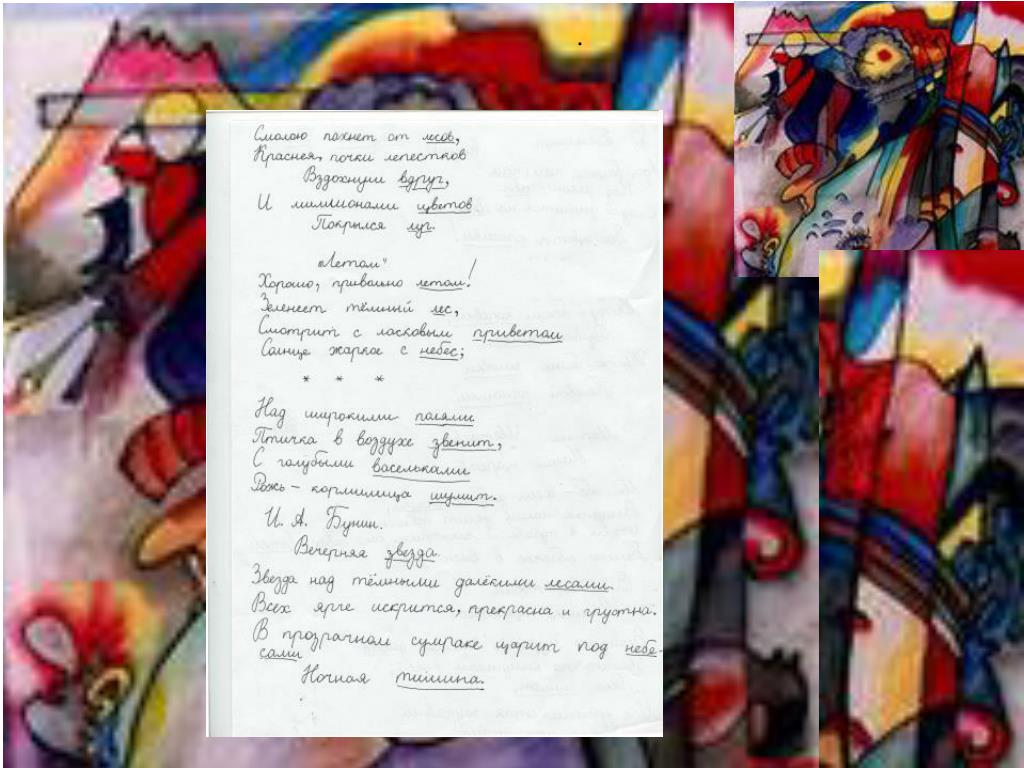 Смолою пахнет от лесов,
Краснея, почки лепестков
Вздохнули вдруг,
И миллионами цветов
Покрылся луг.
„Летом“
Хорошо, привольно летом!
Зеленеет тёмный лес,
Смотрит с ласковым приветом
Солнце жаркое с небес;
* * *
Над широкими полями
Птичка в воздухе звенит,
С голубыми васельками
Рожь – кормилица шумит.
И. А. Бунин.
Вечерняя звезда.
Звезда над тёмными далёкими лесами
Всех ярче искрится, прекрасна и грустна.
В прозрачном сумраке царит под небе-
сами
Ночная тишина.